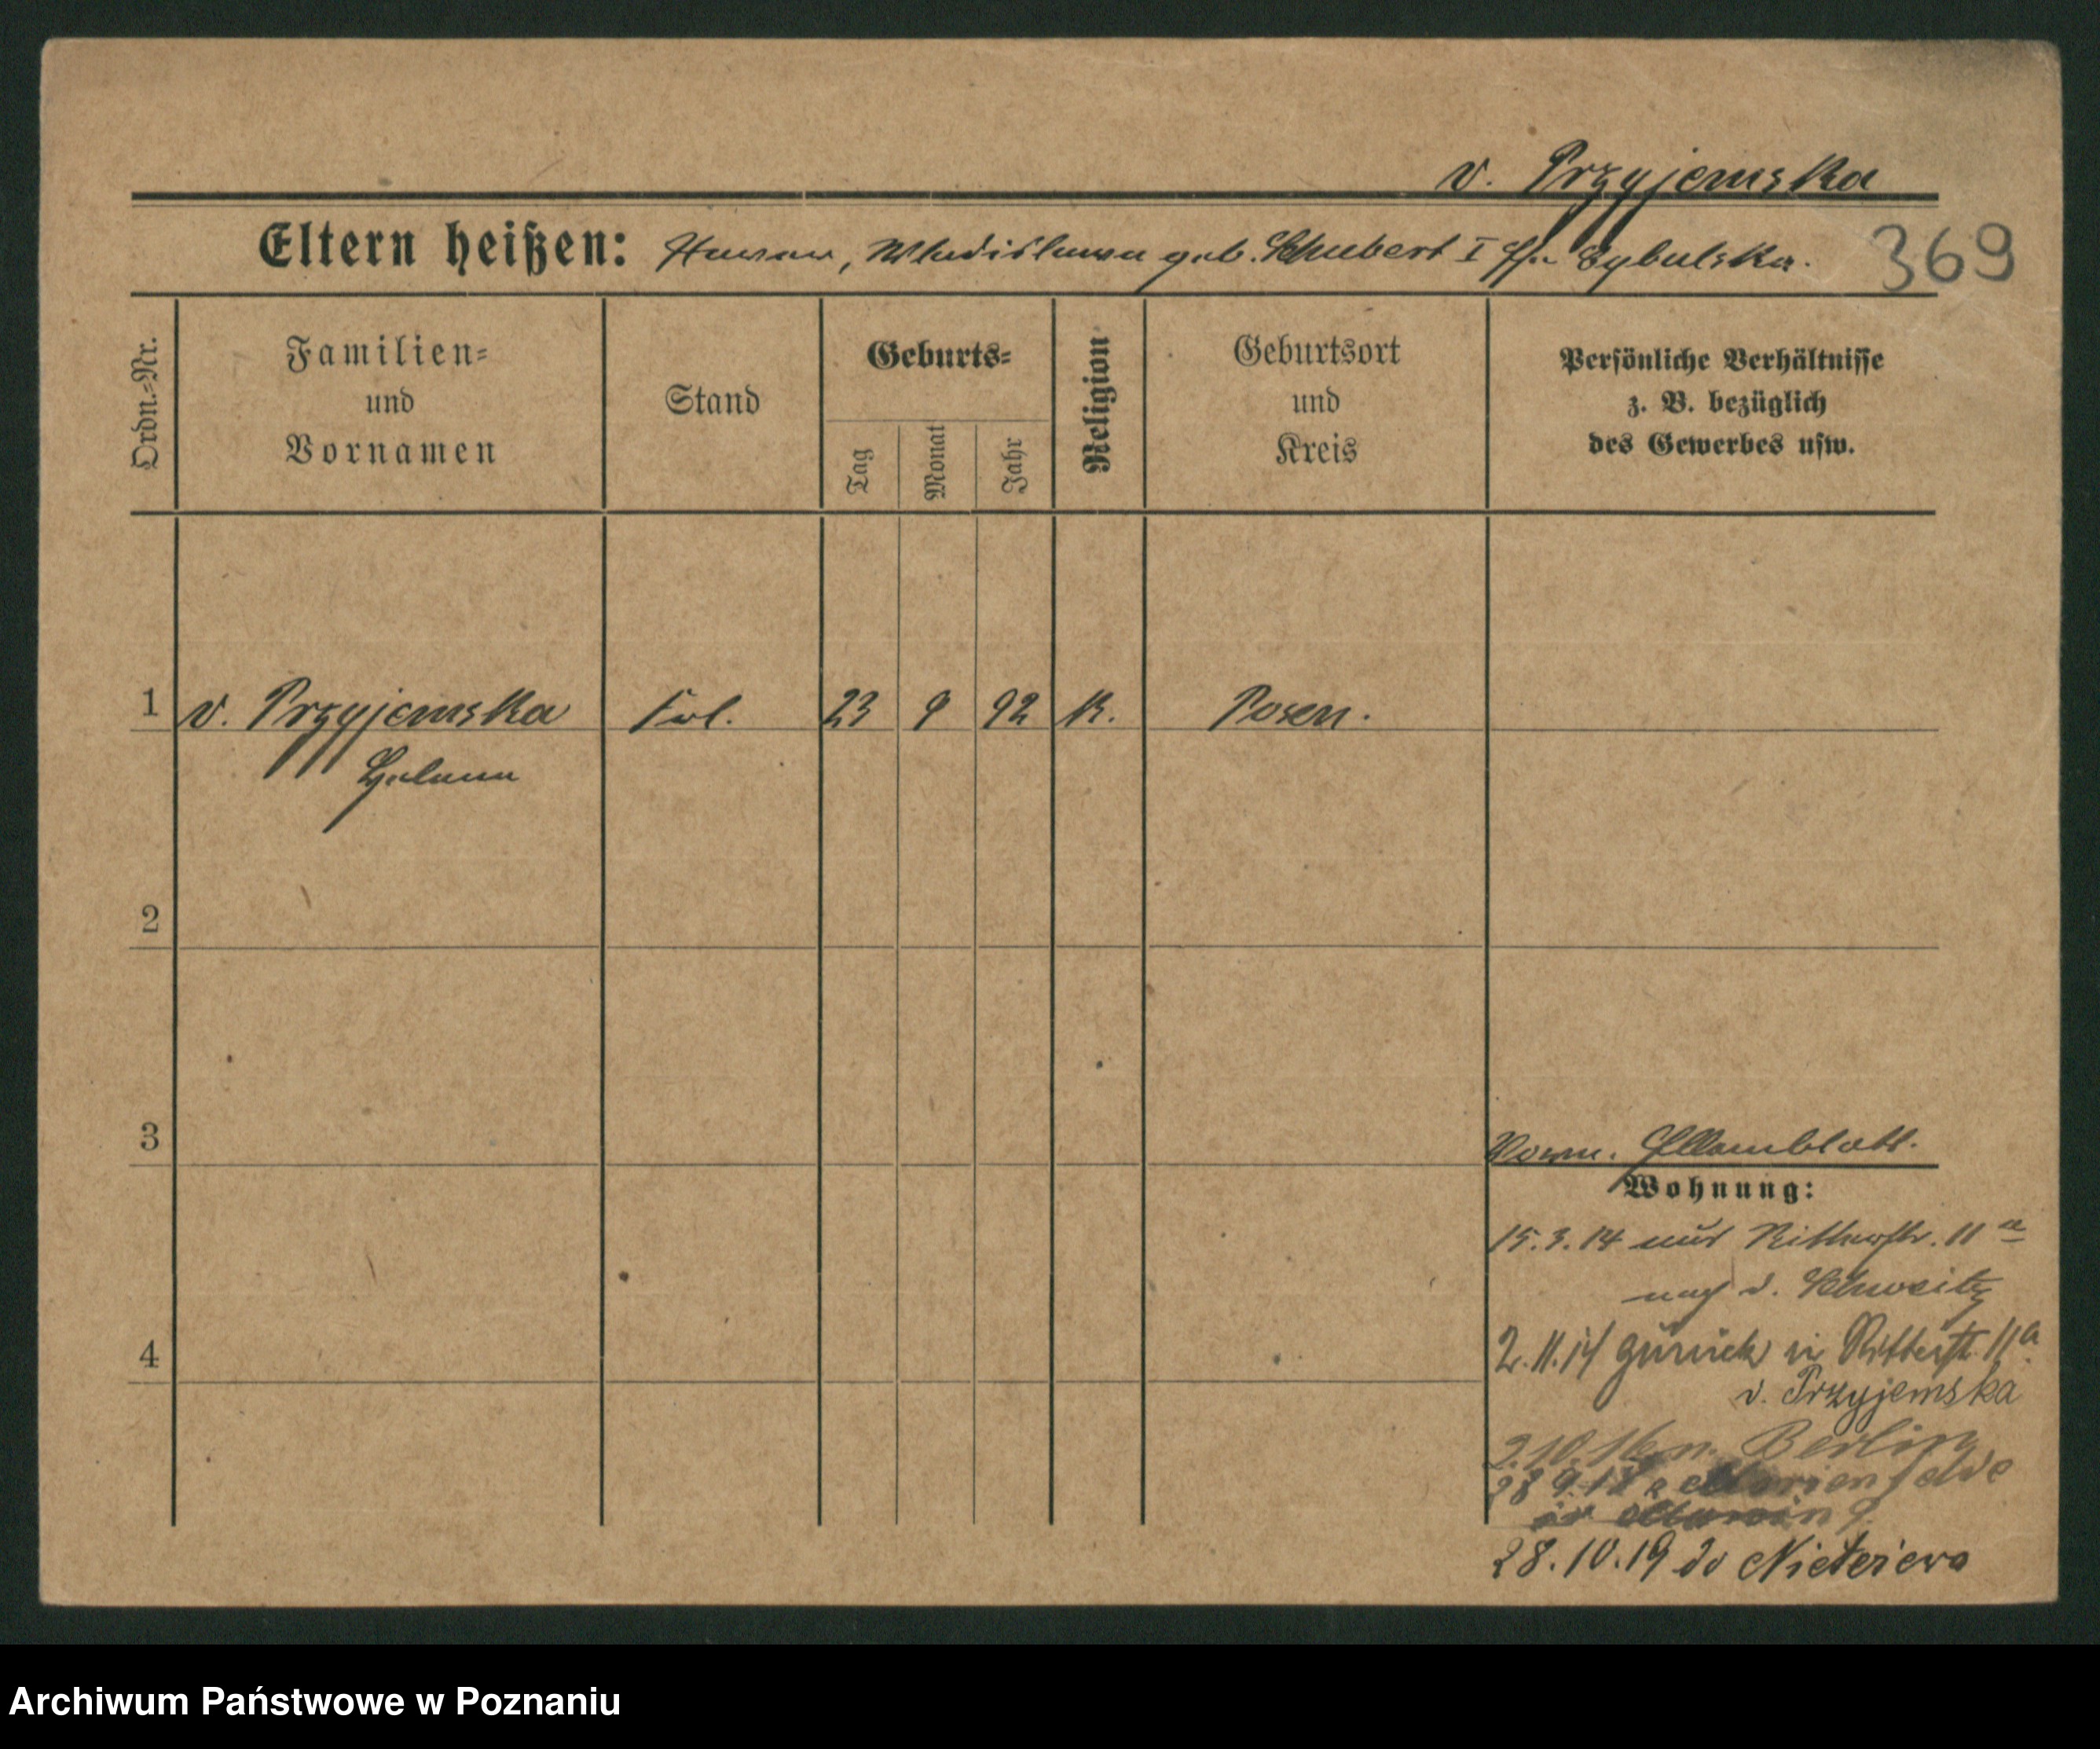 v. Przyjemska
Eltern heißen: Wladislawa geb. Schubert I Zybulska.
369
Ordn.=Nr.
Familien=
und
Vornamen
Stand
Geburts=
Tag
Monat
Jahr
Religion
Geburtsort
und
Kreis
Persönliche Verhältnisse
z. B. bezüglich
des Gewerbes usw.
1 v. Przyjemska Frl. 23 9 92 K. Posen.
2
3
4
Vorm.
Wohnung:
15.3.14 aus Ritterstr. 11 a
nach d. Schweitz
2.11.14 zurück in Ritterstr. 11a
v. Przyjemska
2.10.16 n. Berlin
Marienfelde
28.10.19